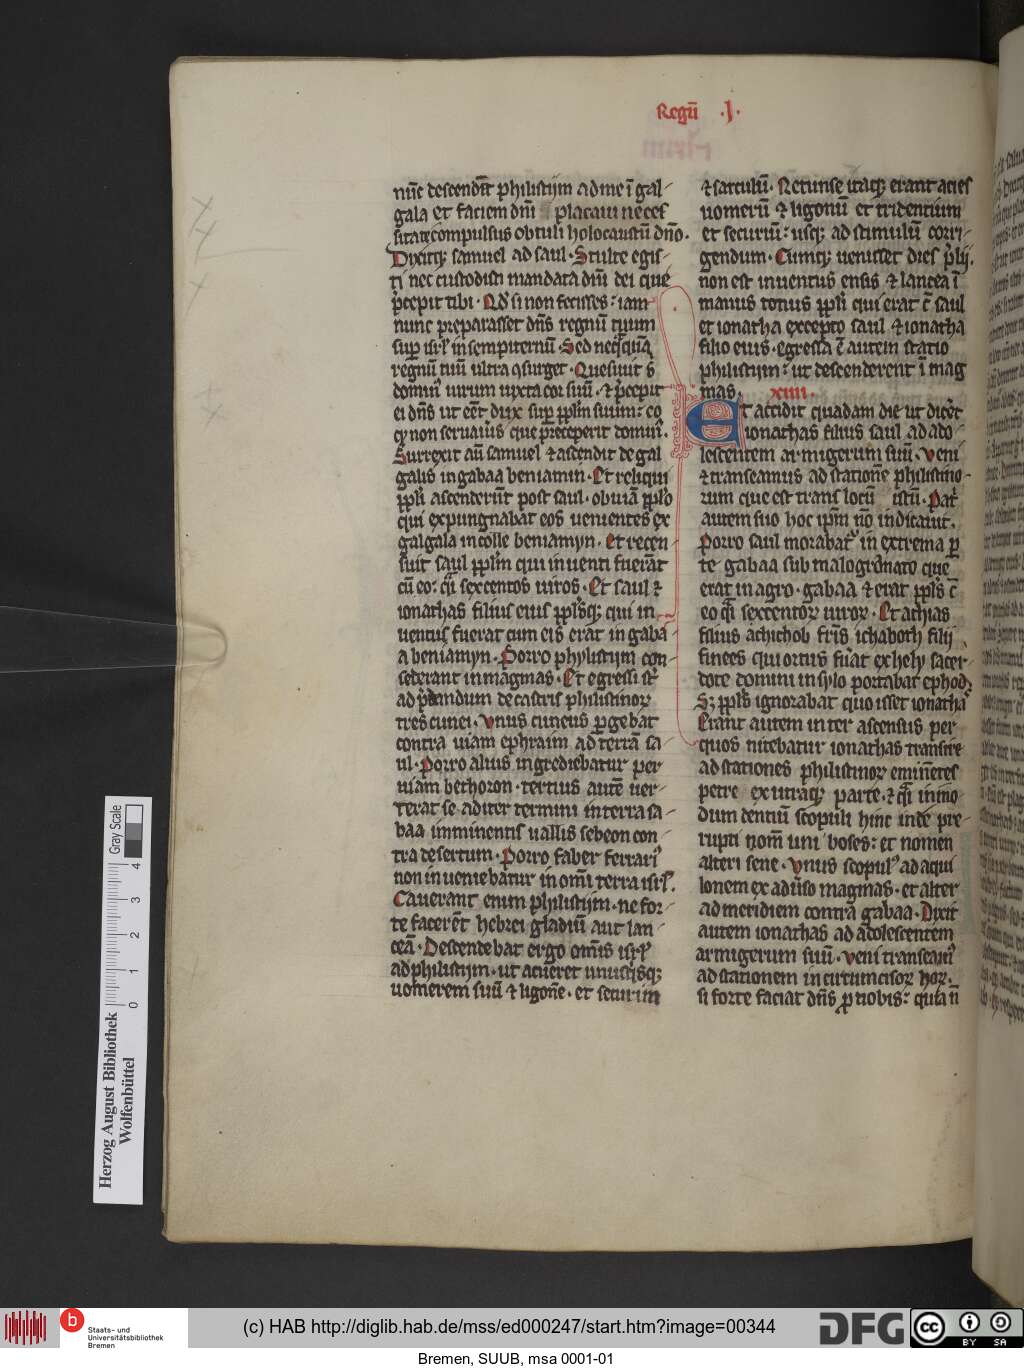 Regū ·I·
nūc descendēt philistijm ad me ī gal
gala et faciem dnī placaui neces
sitate compulsus obtuli holocaustū dño.
Dyxitqꝫ samuel ad saul. Stulte egis
ti nec custodisti mandata dnī dei que
p̄cepit tibi. Qđ si non fecisses: iam
nunc preparasset dn̄s regnū tuum
suꝑ isrl̄ in sempiternū. Sed neq̄quā
regnū tuū ultra ꝯsurget. Quesiuit s̄
domin9 uirum iuxta cor suū. ⁊ p̄cepit
ei dn̄s ut eēt dux suꝑ ppl̄m suum: eo
qꝫ non seruaūis que preceperit domin9.
Surrexit aū samuel ⁊ ascendit de gal
galis in gabaa beniamin. Et reliqui
ppl̄i ascenderūt post saul. obuiā ppl̄o
qui expungnabāt eos uenientes ex
galgala in colle beniamyn. Et recen
suit saul ppl̄m qui inuenti fuerāt
cū eo: q̄si sexcentos uiros. Et saul ⁊
ionathas filius eius ppl̄sqꝫ qui in
uentus fuerat cum eis erat in gaba
a beniamyn. Porro phylistijm con
sederant in magmas. Et egressi st̄
ad p̄dandum de castris philistinoꝝ
tres cunei. Vnus cuneus ꝑgebat
contra uiam ephraim ad terrā sa
ul. Porro alius ingrediebatur per
uiam bethoron. tertius autē uer
terat se ad iter termini in terra sa
baa imminentis uallis seboon con
tra desertum. Porro faber ferrari9
non inueniebatur in omī terra isrl̄.
Cauerant enim philistijm. ne for
te facerēt hebrei gladiū aut lan
ceā. Descendebat ergo omīs isrl̄
ad philistijm. ut acueret unusq̄sqꝫ
uomerem suū ⁊ ligonē. et securim
⁊ sarculū. Retunse itaqꝫ erant acies
uomerū ⁊ ligonū et tridentium
et securiū: usqꝫ ad stimulū corri
gendum. Cumqꝫ uenisset dies p̄lij.
non est inuentus ensis ⁊ lancea ī
manus totius ppl̄i qui erat c̄ saul
et ionatha excepto saul ⁊ ionatha
filio eius. egressa ē autem statio
philistijm: ut descenderent ī mag
mas. xiiii.
Et accidit quadam die ut dicēt
ionathas filius saul ad ado
lescentem armigerum suū. Veni
⁊ transeamus ad stationē philistino
rum que est trans locū istū. Patͥ
autem suo hoc ip̄m nō indicauit.
Porro saul morabatͬ in extrema ꝑ
te gabaa sub malogranato que
erat in agro. gabaa ⁊ erat ppl̄s c̄
eo q̄si sexcentoꝝ uiroꝝ. Et achias
filius achichob fr̄is ichaboth filij
finees qui ortus fūat ex hely sacer
dote domini in sylo portabat ephod.
Sꝫ ppl̄s ignorabat quo isset ionathas
Erant autem inter ascensus per
quos nitebatur ionathas transire
ad stationes philistinoꝝ eminētes
petre ex utraqꝫ parte. ⁊ q̄si in mo
dum dentiū scopuli hinc inde pre
rupti nom̄ uni boses: et nomen
alteri sene. Vnus scopul9 ad aqui
lonem ex aduso magmas. et alter
ad meridiem contra gabaa. Dixit
autem ionathas ad adolescentem
armigerum suū. Veni transeam9
ad stationem incircumcisoꝝ hoꝝ.
si forte faciat dn̄s ꝓ nobis: quia n̄
Gray Scale
4
3
2
1
0
Herzog August Bibliothek
Wolfenbüttel
b Staats- und
Universitätsbibliothek
Bremen
(c) HAB http://diglib.hab.de/mss/ed000247/start.htm?image=00344
DFG
cc BY SA
Bremen, SUUB, msa 0001-01